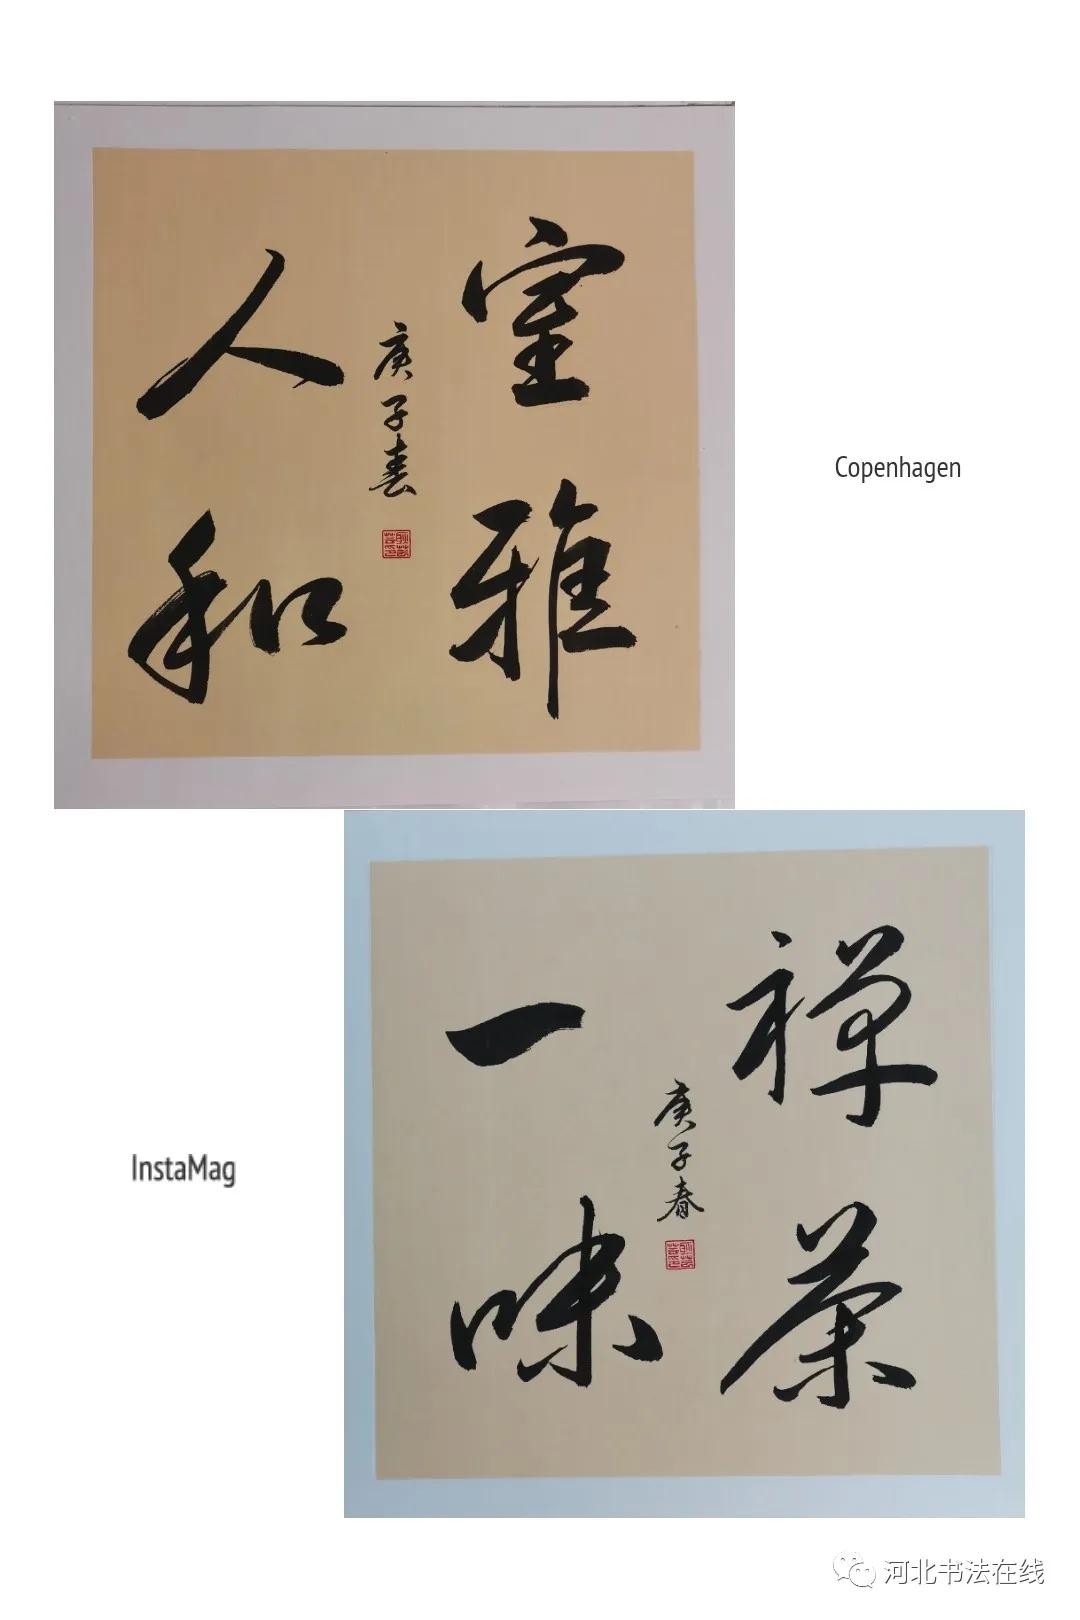 室雅
人和
庚子春
Copenhagen
禅茶
一味
庚子春
InstaMag
河北书法在线